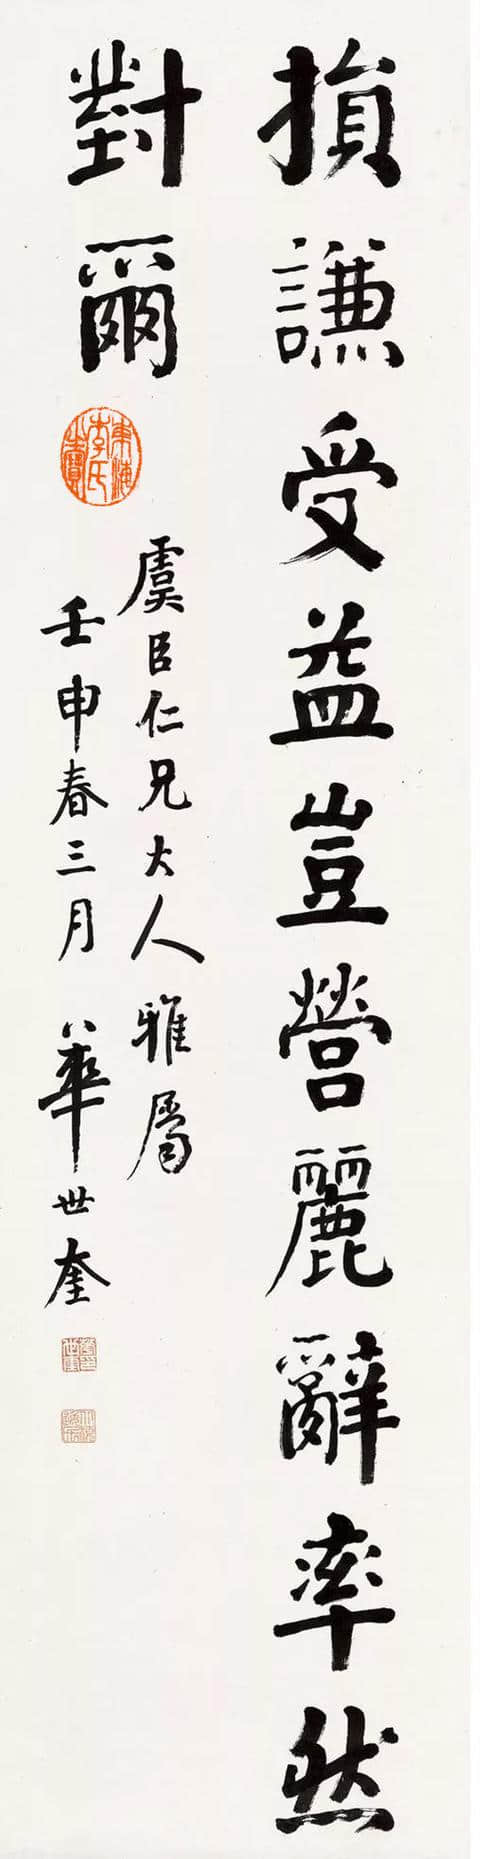 損謙受益豈營麗辭率然
對爾
東海
李氏
虞臣仁兄大人雅屬
壬申春三月 華世奎